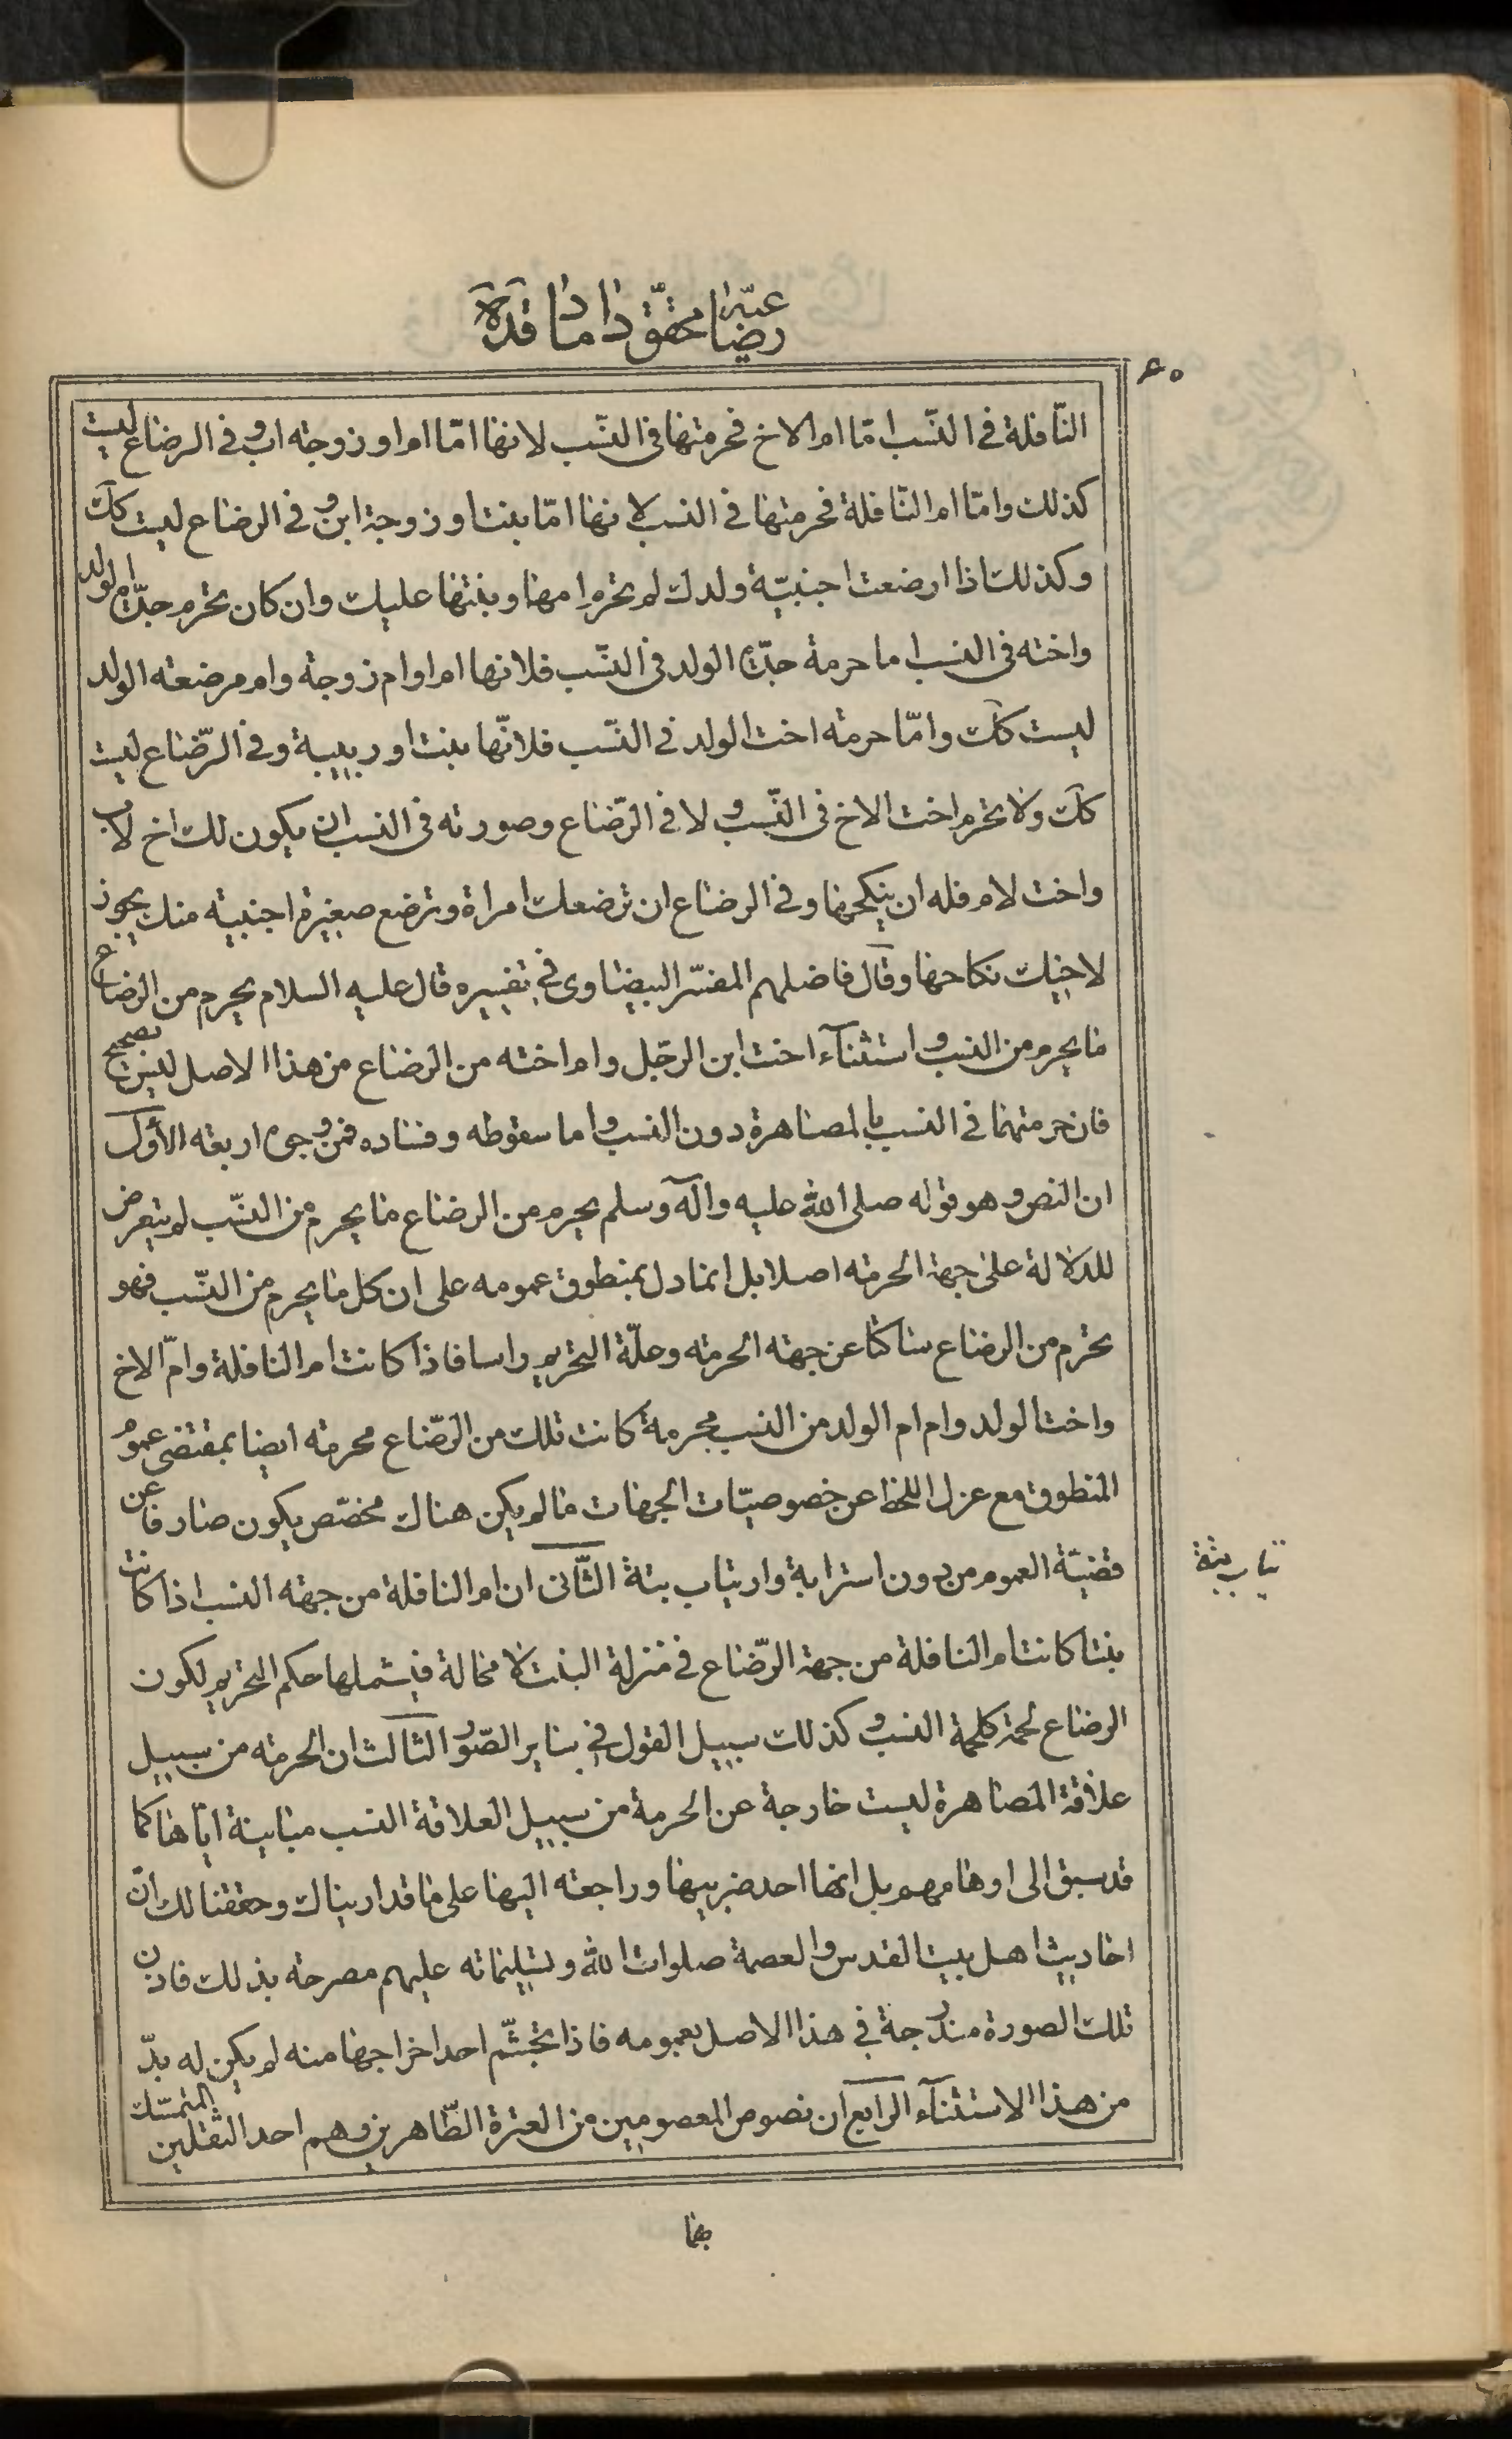 رضاعيّة محقق داماد قدّه
٦٠
النّافلة في النّسب امّا ام الاخ فحرمتها في النّسب لانها امّا ام او زوجة اب و في الرضاع ليست
كذلك وامّا ام النّافلة فحرمتها في النسب لانها امّا بنت او زوجة ابن و في الرضاع ليست كك
وكذلك اذا ارضعت اجنبيّة ولدك لم يحرم امها وبنتها عليك وان كان يحرم جدّات الولد
واخته في النسب اما حرمة جدّات الولد في النّسب فلانها ام او ام زوجة وام مرضعة الولد
ليست كك وامّا حرمة اخت الولد في النّسب فلانّها بنت او ربيبة وفي الرّضاع ليست
كك ولا يحرم اخت الاخ في النّسب و لا في الرّضاع وصورته في النسب ان يكون لك اخ لاب
واخت لام فله ان ينكحها وفي الرضاع ان ترضعك امراة وترضع صغيرة اجنبية منك يجوز
لاخيك نكاحها وقال فاضلهم المفسّر البيضاوى في تفسيره قال عليه السلام يحرم من الرضاع
ما يحرم من النسب و استثنآء اخت ابن الرجل وام اخته من الرضاع من هذا الاصل ليس بصحيح
فان حرمتهما في النسب بالمصاهرة دون النسب و اما سقوطه وفساده فمن وجوه اربعة الأول
ان النص و هو قوله صلى الله عليه وآله وسلم يحرم من الرضاع ما يحرم من النّسب لم يتعرض
للدلالة على جهة الحرمة اصلا بل انما دل بمنطوق عمومه على ان كل ما يحرم من النّسب فهو
يحرم من الرضاع ساكتا عن جهة الحرمة وعلّة التحريم راسا فاذا كانت ام النافلة وامّ الاخ
واخت الولد وام ام الولد من النسب محرمة كانت تلك من الرّضاع محرمة ايضا بمقتضى عموم
المنطوق مع عزل اللحظ عن خصوصيّات الجهات ما لم يكن هناك مخصّص يكون صارفا عن
قضيّة العموم من دون استرابة وارتياب بتة الثّانى ان ام النافلة من جهة النسب اذا كانت
بنتا كانت ام النافلة من جهة الرّضاع في منزلة البنت لا محالة فيشملها حكم التحريم لكون
الرضاع لحمة كلحمة النسب و كذلك سبيل القول في ساير الصّور الثالث ان الحرمة من سبيل
علاقة المصاهرة ليست خارجة عن الحرمة من سبيل العلاقة النسب مباينة ايّاها كما
قد سبق الى اوهامهم بل انها احد ضربيها وراجعة اليها على ما قد اريناك وحققنا لك انّ
احاديث اهل بيت القدس والعصمة صلوات الله وتسليماته عليهم مصرحة بذلك فاذن
تلك الصورة مندرجة في هذا الاصل بعمومه فاذا تجشّم احد اخراجها منه لم يكن له بدّ
من هذا الاستثنآء الرابع ان نصوص المعصومين من العترة الطّاهرين وهم احد الثقلين المتمسّك
بها